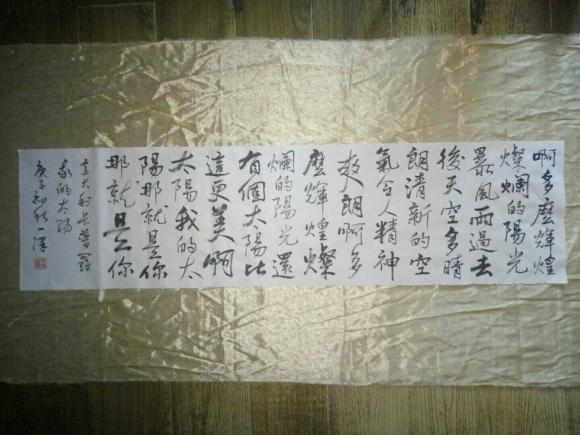 啊多麽輝煌
燦爛的陽光
暴風雨過去
後天空多晴
朗清新的空
氣令人精神
爽朗啊多
麽輝煌燦
爛的陽光還
有個太陽比
這更美啊
太陽我的太
陽那就是你
那就是你
意大利卡普羅
我的太陽
庚子初秋一澤